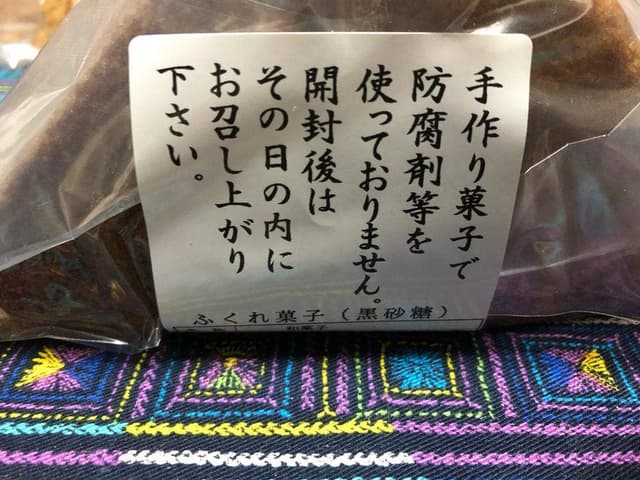 手作り菓子で
防腐剤等を
使っておりません。
開封後は
その日の内に
お召し上がり
下さい。
ふくれ菓子（黒砂糖）
名称 和菓子